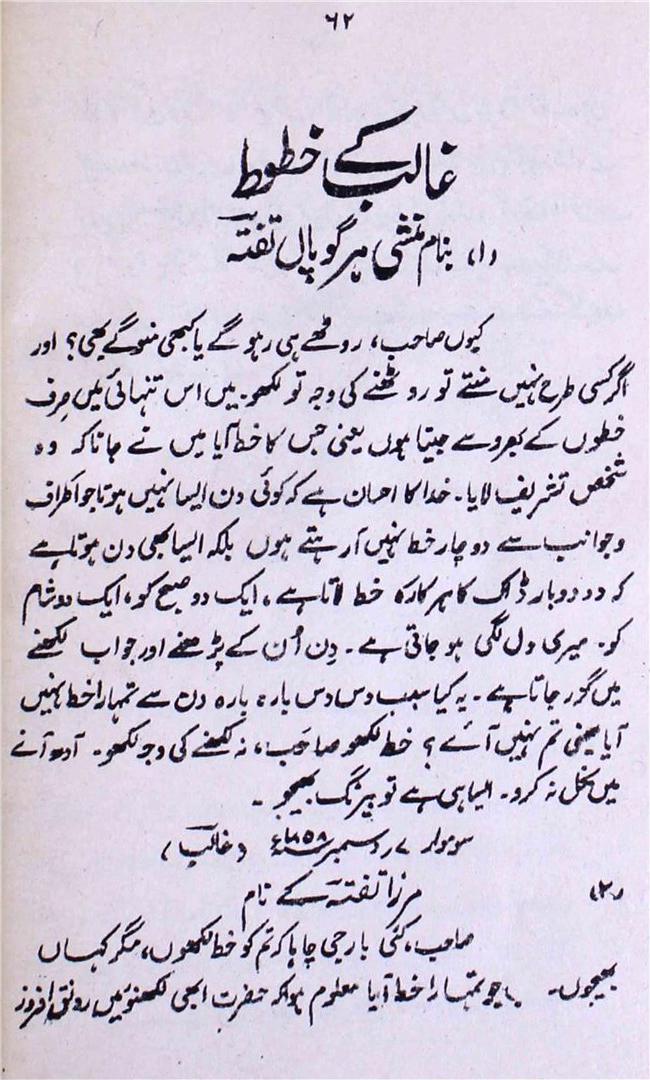 ۶۲
غالب کے خطوط
(۱) بنام منشی ہرگوپال تفتہ
کیوں صاحب، روٹھے ہی رہو گے یا کبھی منو گے بھی؟ اور
اگر کسی طرح نہیں منتے تو روٹھنے کی وجہ تو لکھو۔ میں اس تنہائی میں صرف
خطوں کے بھروسے جیتا ہوں یعنی جس کا خط آیا میں نے جانا کہ وہ
شخص تشریف لایا۔ خدا کا احسان ہے کہ کوئی دن ایسا نہیں ہوتا جو اطراف
وجوانب سے دو چار خط نہیں آ رہتے ہوں بلکہ ایسا بھی دن ہوتا ہے
کہ دو دو بار ڈاک کا ہرکارہ خط لاتا ہے، ایک دو صبح کو، ایک دو شام
کو۔ میری دل لگی ہو جاتی ہے۔ دِن اُن کے پڑھنے اور جواب لکھنے
میں گزر جاتا ہے۔ یہ کیا سبب دس دس بارہ بارہ دن سے تمہارا خط نہیں
آیا یعنی تم نہیں آئے؟ خط لکھو صاحب، نہ لکھنے کی وجہ لکھو۔ آدھ آنے
میں بخل نہ کرو۔ ایسا ہی ہے تو بیرنگ بھیجو۔
سوموار ۲۷ دسمبر ۱۸۵۸ء (غالب)
(۲) مرزا تفتہ کے نام
صاحب، کئی بار جی چاہا کہ تم کو خط لکھوں، مگر کہاں
بھیجوں۔ جو تمہارا خط آیا معلوم ہوا کہ حضرت ابھی لکھنؤ میں رونق افروز